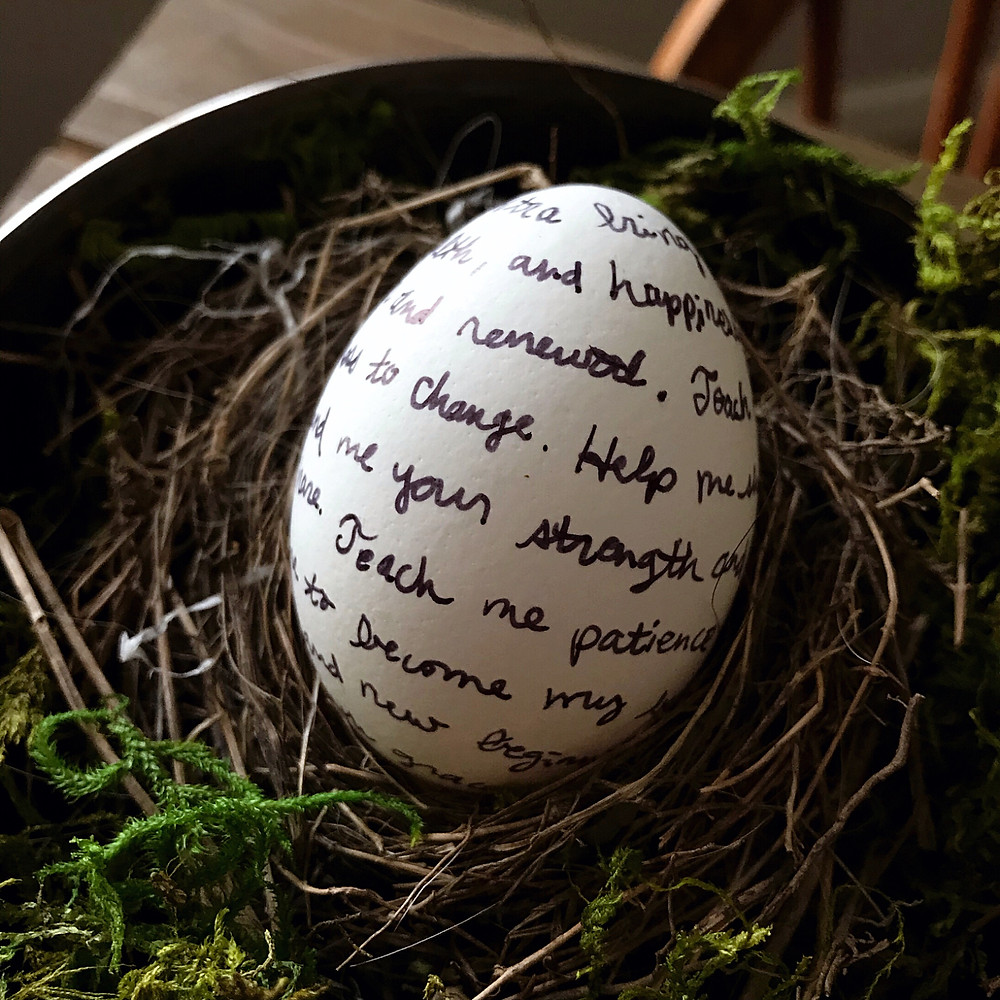 tra bring
lth, and happine
and renewal. Teach
us to change. Help me
nd me your strength and
are. Teach me patience
to become my
and new begin
gra